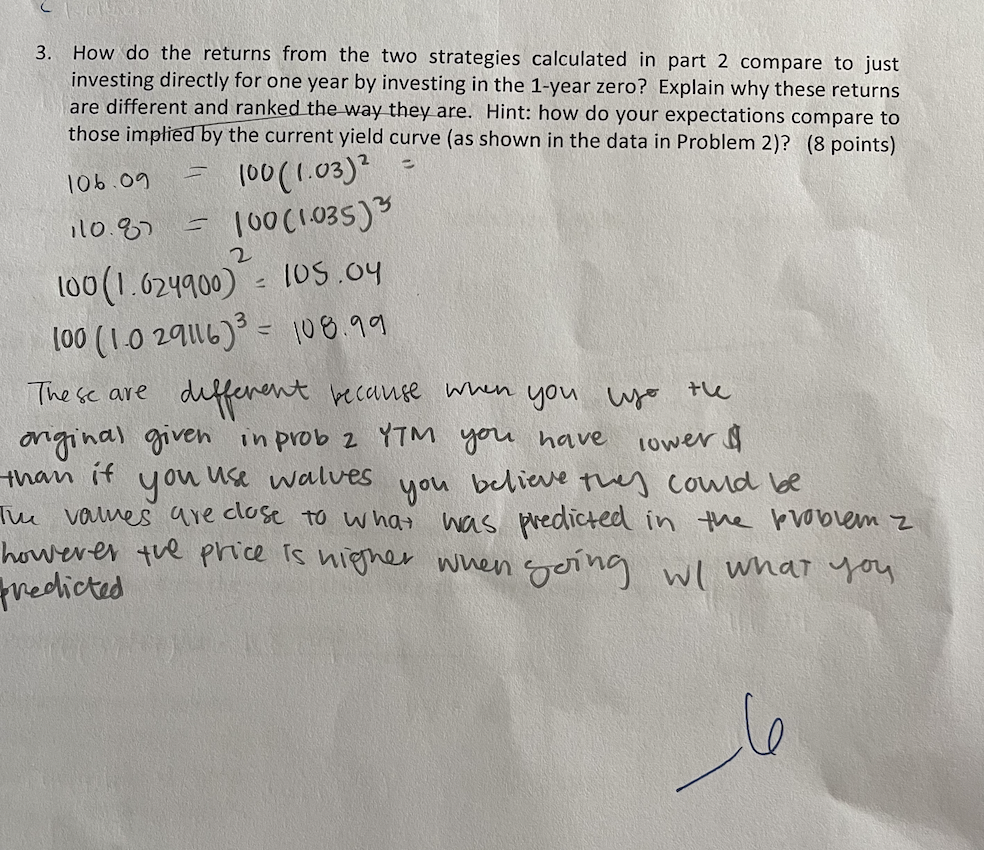 3. How do the returns from the two strategies calculated in part 2 compare to just
investing directly for one year by investing in the 1-year zero? Explain why these returns
are different and ranked the way they are. Hint: how do your expectations compare to
those implied by the current yield curve (as shown in the data in Problem 2)? (8 points)
106.09 = 100(1.03)² =
110.87 = 100(1.035)³
100(1.024900)² = 105.04
100(1.029116)³ = 108.99
These are different because when you use the
original given in prob 2 YTM you have lower $
than if you use walves you believe they could be
The values are close to what was predicted in the problem 2
however the price is higher when going w/ what you
predicted
-6